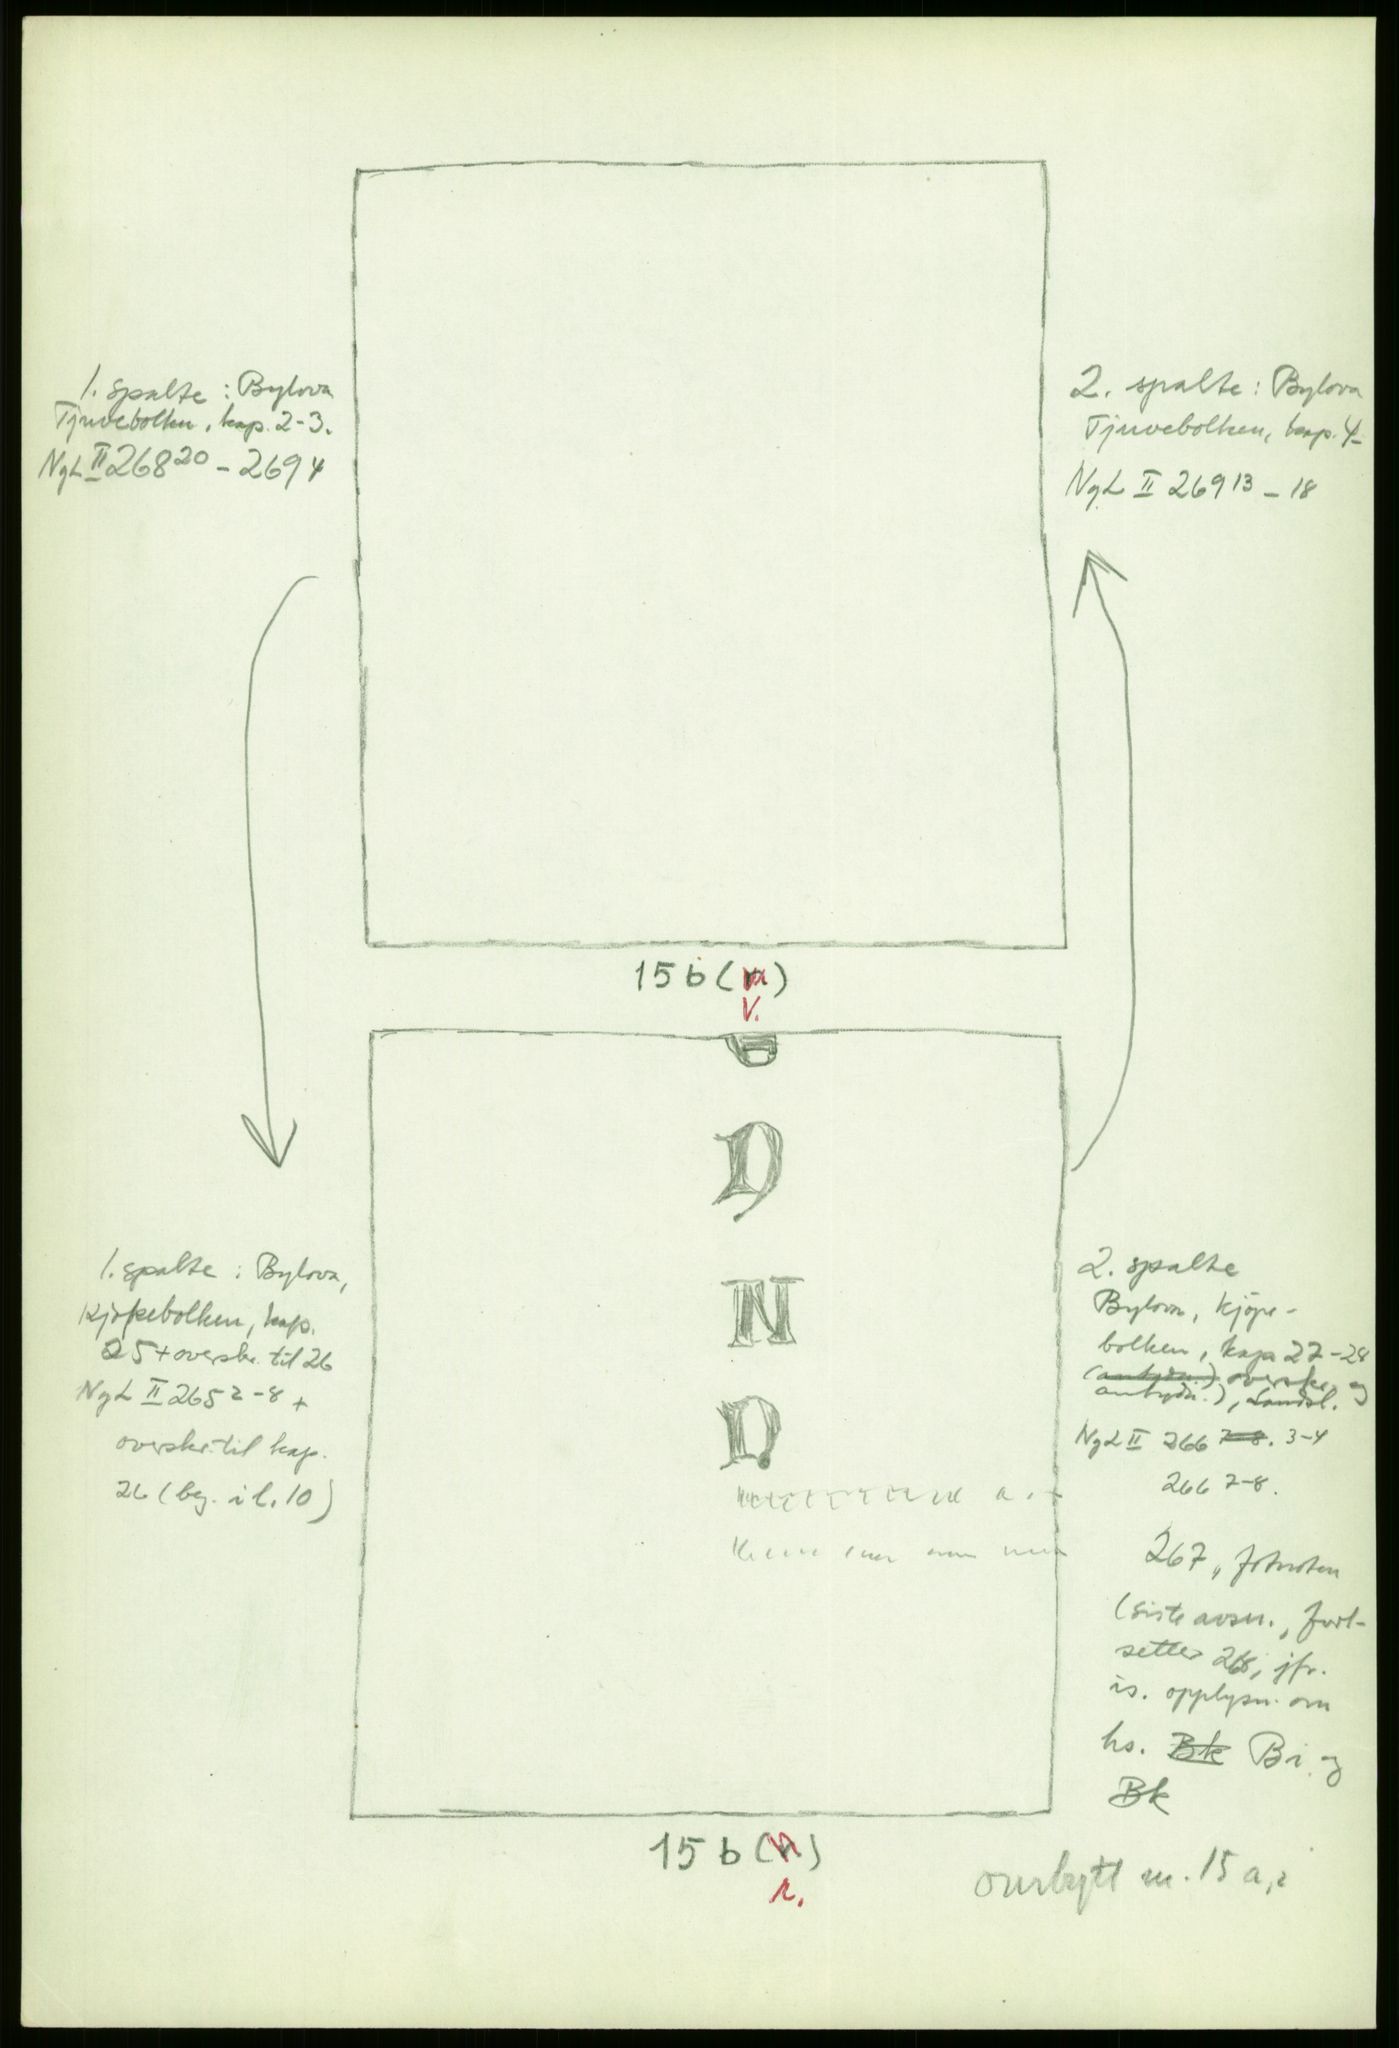 1. spalte : Bylova
Tjuvebolken, kap. 2-3.
NgL II 268 20 - 269 4
2. spalte : Bylova
Tjuvebolken, kap. 4-
NgL II 269 13 - 18
15 b ( )
v.
D
N
D
1. spalte : Bylova,
Kjøpebolken, kap.
25 + overskr. til 26
NgL II 265 2-8 +
overskr. til kap.
26 (beg. i l. 10)
2. spalte
Bylova, kjöpe-
bolken, kap. 27-28
(antydn.) overskr. og
antydn.), Landsl.
NgL II 266 7-8. 3-4
266 7-8.
267, fotnoten
(siste avsn., fort-
setter 268, jfr.
is. opplysn. om
hs. Bk Bi og
Bk
15 b ( )
r.
ombytt m. 15 a,